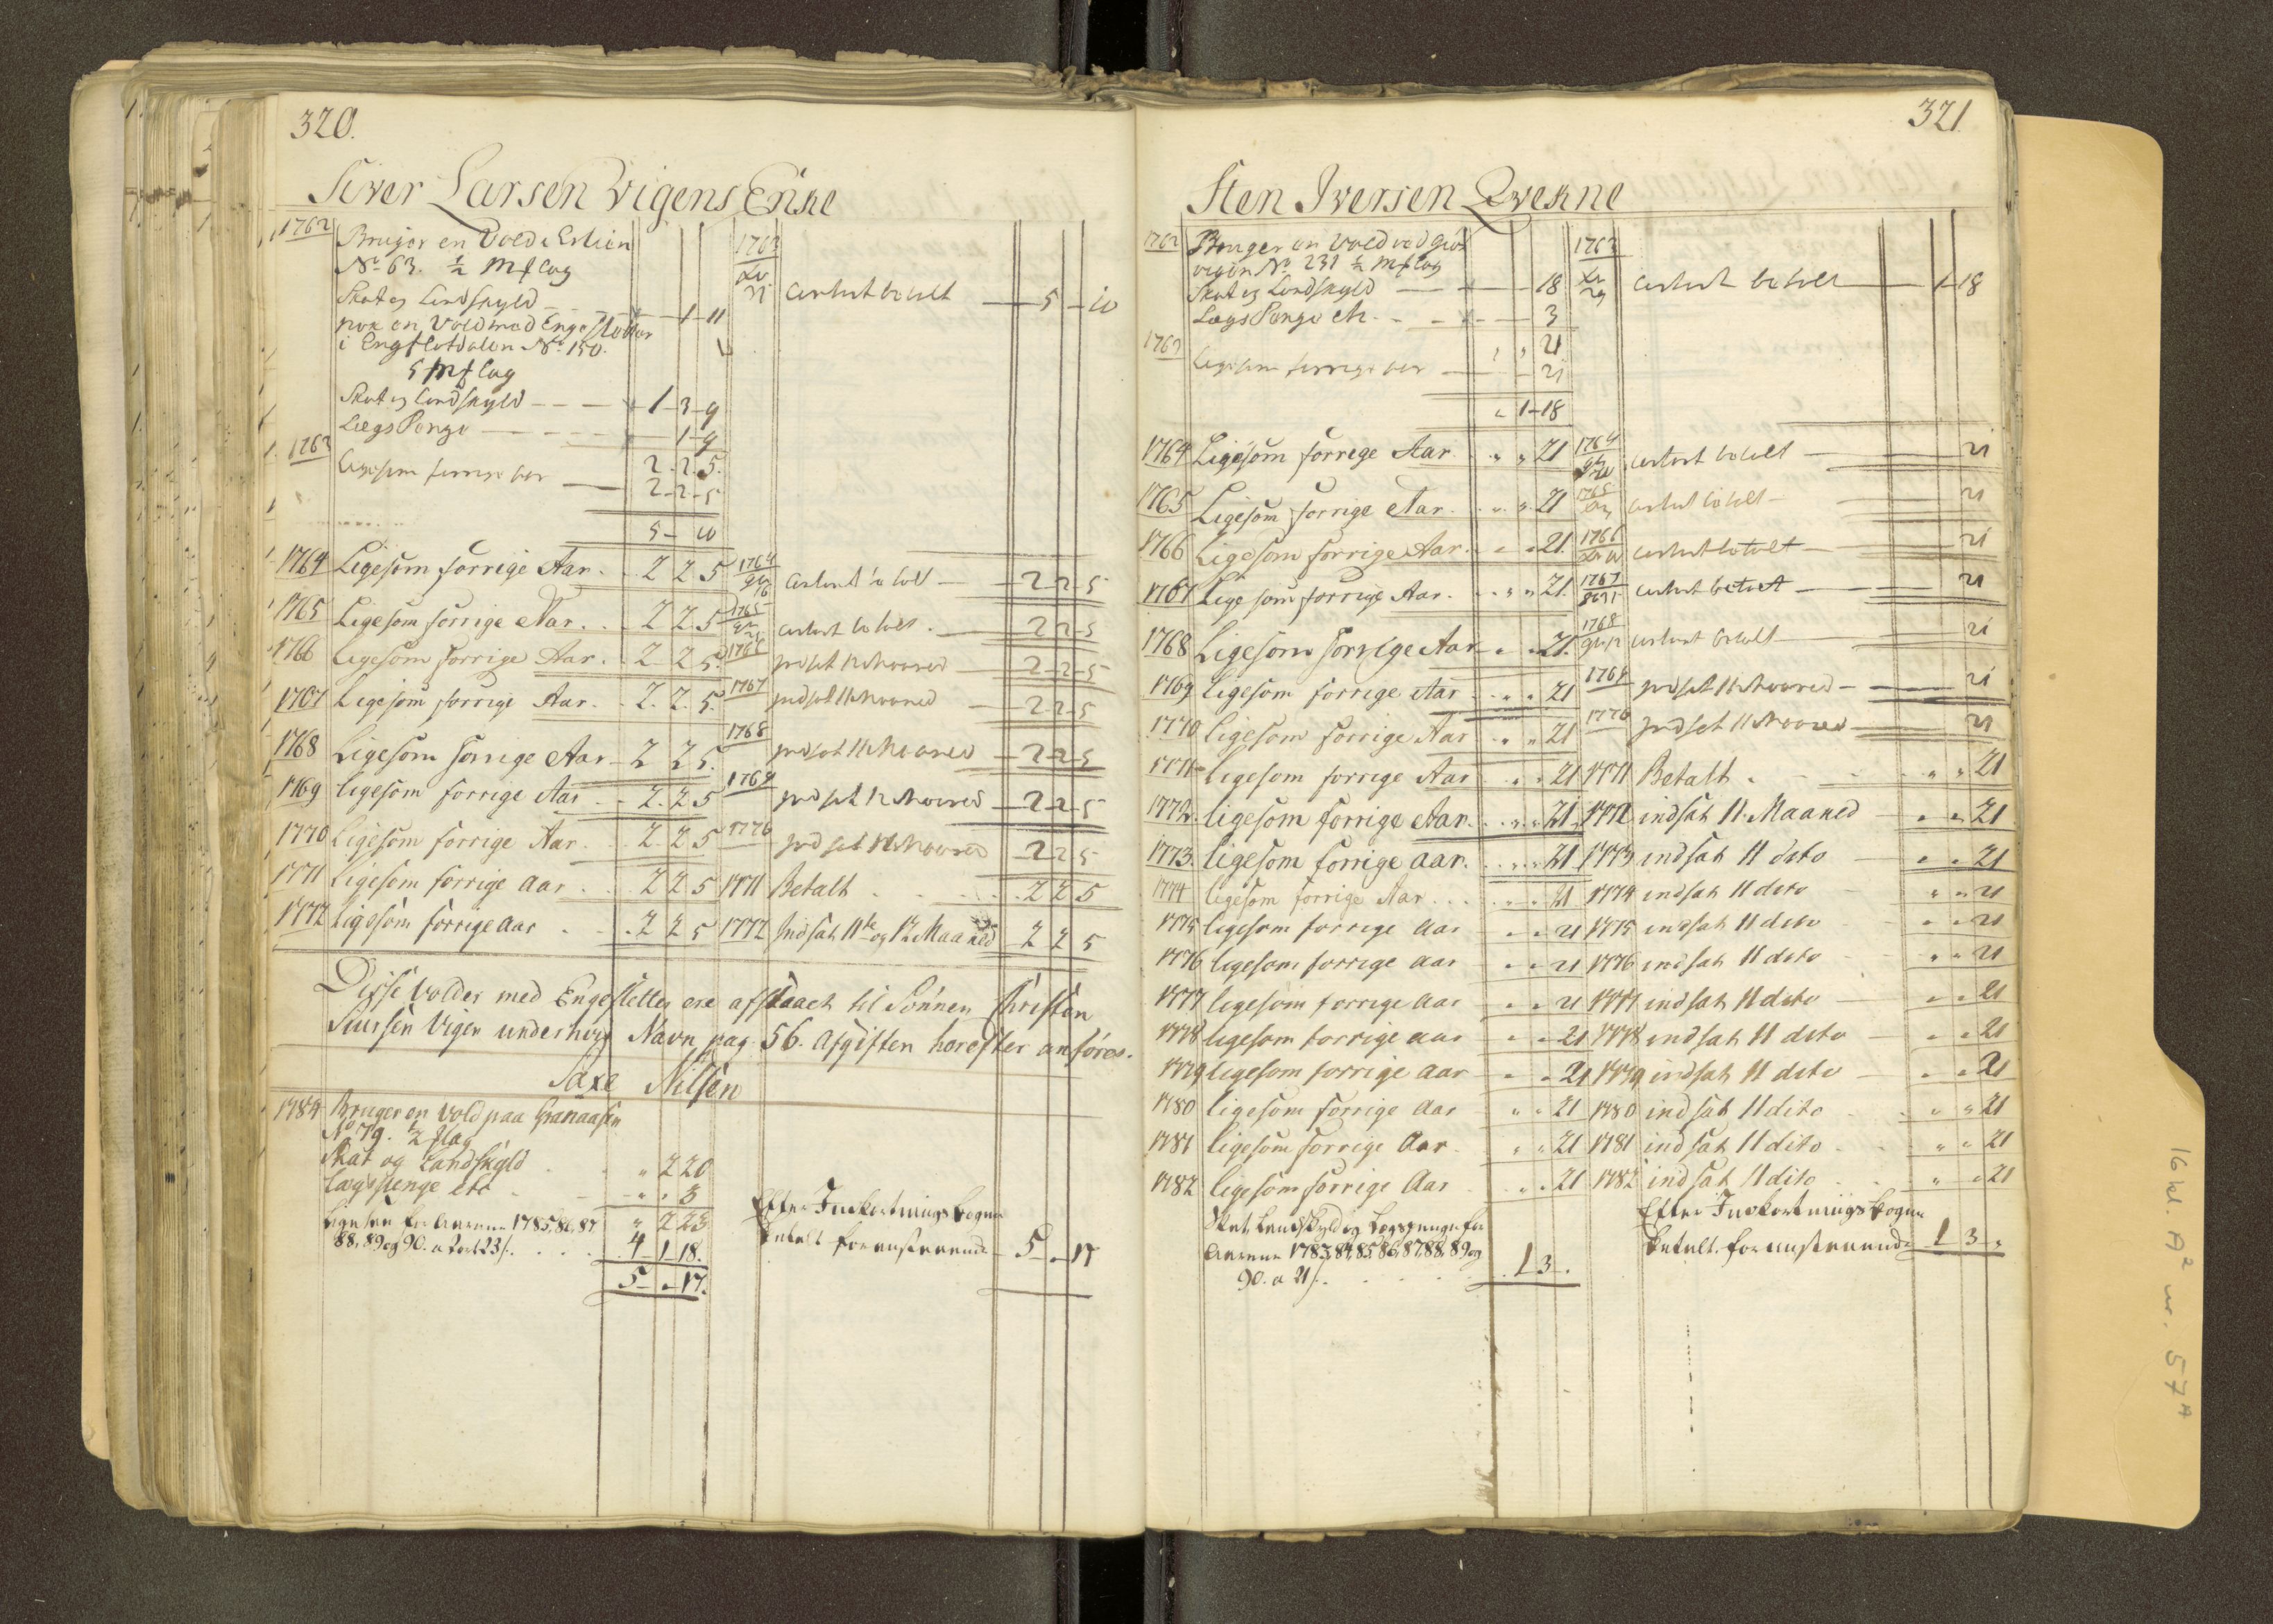 320.
Siver Larsen Vigens Enke
1762 Bruger en Vold i Lien
No 63. ½ Mflag
Skat og Landskyld 1 11
nok en Vold med Engesletter
i Engsletdalen No 150.
5 Mflag
Skat og Landskyld 1 3 9
Lægs Penge 1 9
2 2 5.
1763 Ligesom forrige aar 2 2 5
5 10
1763 betalt 5 10
1764 Ligesom forrige Aar. 2 2 5 1764 betalt 2 2 5
1765 Ligesom forrige Aar. 2 2 5 1765 betalt 2 2 5
1766 Ligesom forrige Aar. 2 2 5. 1766 indsat 12 Maaned 2 2 5
1767 Ligesom forrige Aar. 2. 2. 5. 1767 indsat 11 Maaned 2 2 5
1768 Ligesom forrige Aar 2 2 5. 1768 indsat 11 Maaned 2 2 5
1769 ligesom forrige Aar 2. 2 5 1769 indsat 12 Maaned 2 2 5
1770 Ligesom forrige Aar. 2 2 5 1770 indsat 11 Maaned 2 2 5
1771 ligesom forrige Aar 2 2 5 1771 Betalt 2 2 5
1772 ligesom forrige Aar 2 2 5 1772 Indsat 11te og 12 Maaned 2 2 5
Disse Volder med Engesletter ere afstaaet til Sönnen Christen
Siursen Vigen under hvis Navn pag 56. Afgiften herefter anföres.
Saxe Nilsen
1784 Bruger en Vold paa Granaasen
No 79. ½ flag
Skat og Landskyld " 2 20
Lægspenge etc " " 3
" 2 23
Ligesaa for Aarene 1785, 86, 87
88, 89 og 90. a 2 ort 23 s. 4 1 18.
5 " 17.
Efter Inckortnings bogen
betalt foranstaaende 5 " 17
321.
Sten Iversen Qvekne
1762 Bruger en Vold ved Giös
vigen No 231 ½ Mflag
Skat og Landskyld 18
Lægs Penge etc. 3
" " 21
1763 Ligesom forrige aar 21
" 1 18
1763 betalt 1 18
1764 Ligesom forrege Aar " " 21 1764 betalt 21
1765 Ligesom forrige Aar. " " 21 1765 betalt 21
1766 Ligesom forrige Aar. " " 21. 1766 betalt 21
1767 Lige som forrige Aar. " " 21. 1767 betalt 21
1768 Ligesom forrige Aar " " 21. 1768 betalt 21
1769 Ligesom forrige Aar " " 21 1769 indsat 11 Maaned 21
1770 ligesom forrige Aar " " 21 1770 indsat 11 Maaned 21
1771 ligesom forrige Aar " " 21 1771 Betalt " " 21
1772 ligesom forrige Aar. " " 21 1772 indsat 11. Maaned " " 21
1773. ligesom forrige aar. " " 21 1773 indsat 11 dito " " 21
1774 ligesom forrige Aar " " 21 1774 indsat 11 dito " " 21
1775 ligesom forrige Aar " " 21 1775 indsat 11 dito " " 21
1776 ligesom forrige aar " " 21 1776 indsat 11 dito " " 21
1777 ligesom forrige Aar " " 21 1777 indsat 11 dito " " 21
1778 ligesom forrige aar " " 21 1778 indsat 11 dito " " 21
1779 ligesom forrige aar " " 21 1779 indsat 11 dito " " 21
1780 ligesom forrige Aar " " 21 1780 indsat 11 dito " " 21
1781 ligesom forrige Aar " " 21 1781 indsat 11 dito " " 21
1782 ligesom forrige Aar " " 21 1782 indsat 11 dito " " 21
Skat, Landskyld og Lægspenge for
Aarene 1783, 84, 85, 86, 87, 88, 89 og
90. a 21 s. 1 3 .
Efter Inckortnings bogen
betalt foranstaaende 1 3 "
16 kl. A² nr. 57ᴬ